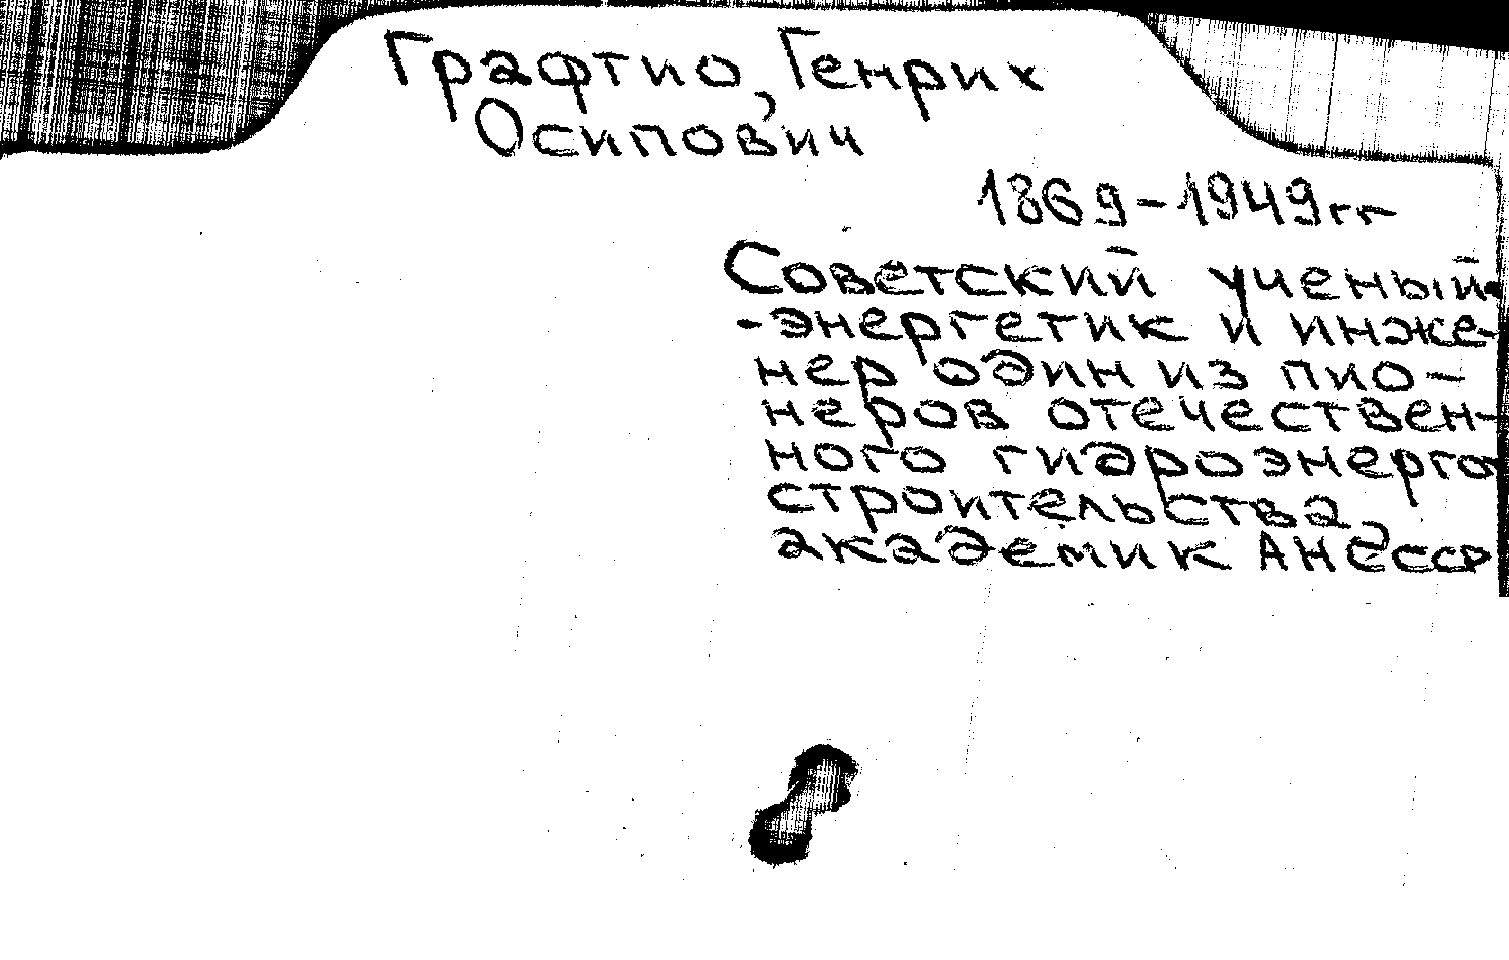 Графтио, Генрих
Осипович
1869-1949гг
Советский ученый-
-энергетик и инже-
нер один из пио-
неров отечествен-
ного гидроэнерго
строительства,
академик АНСССР